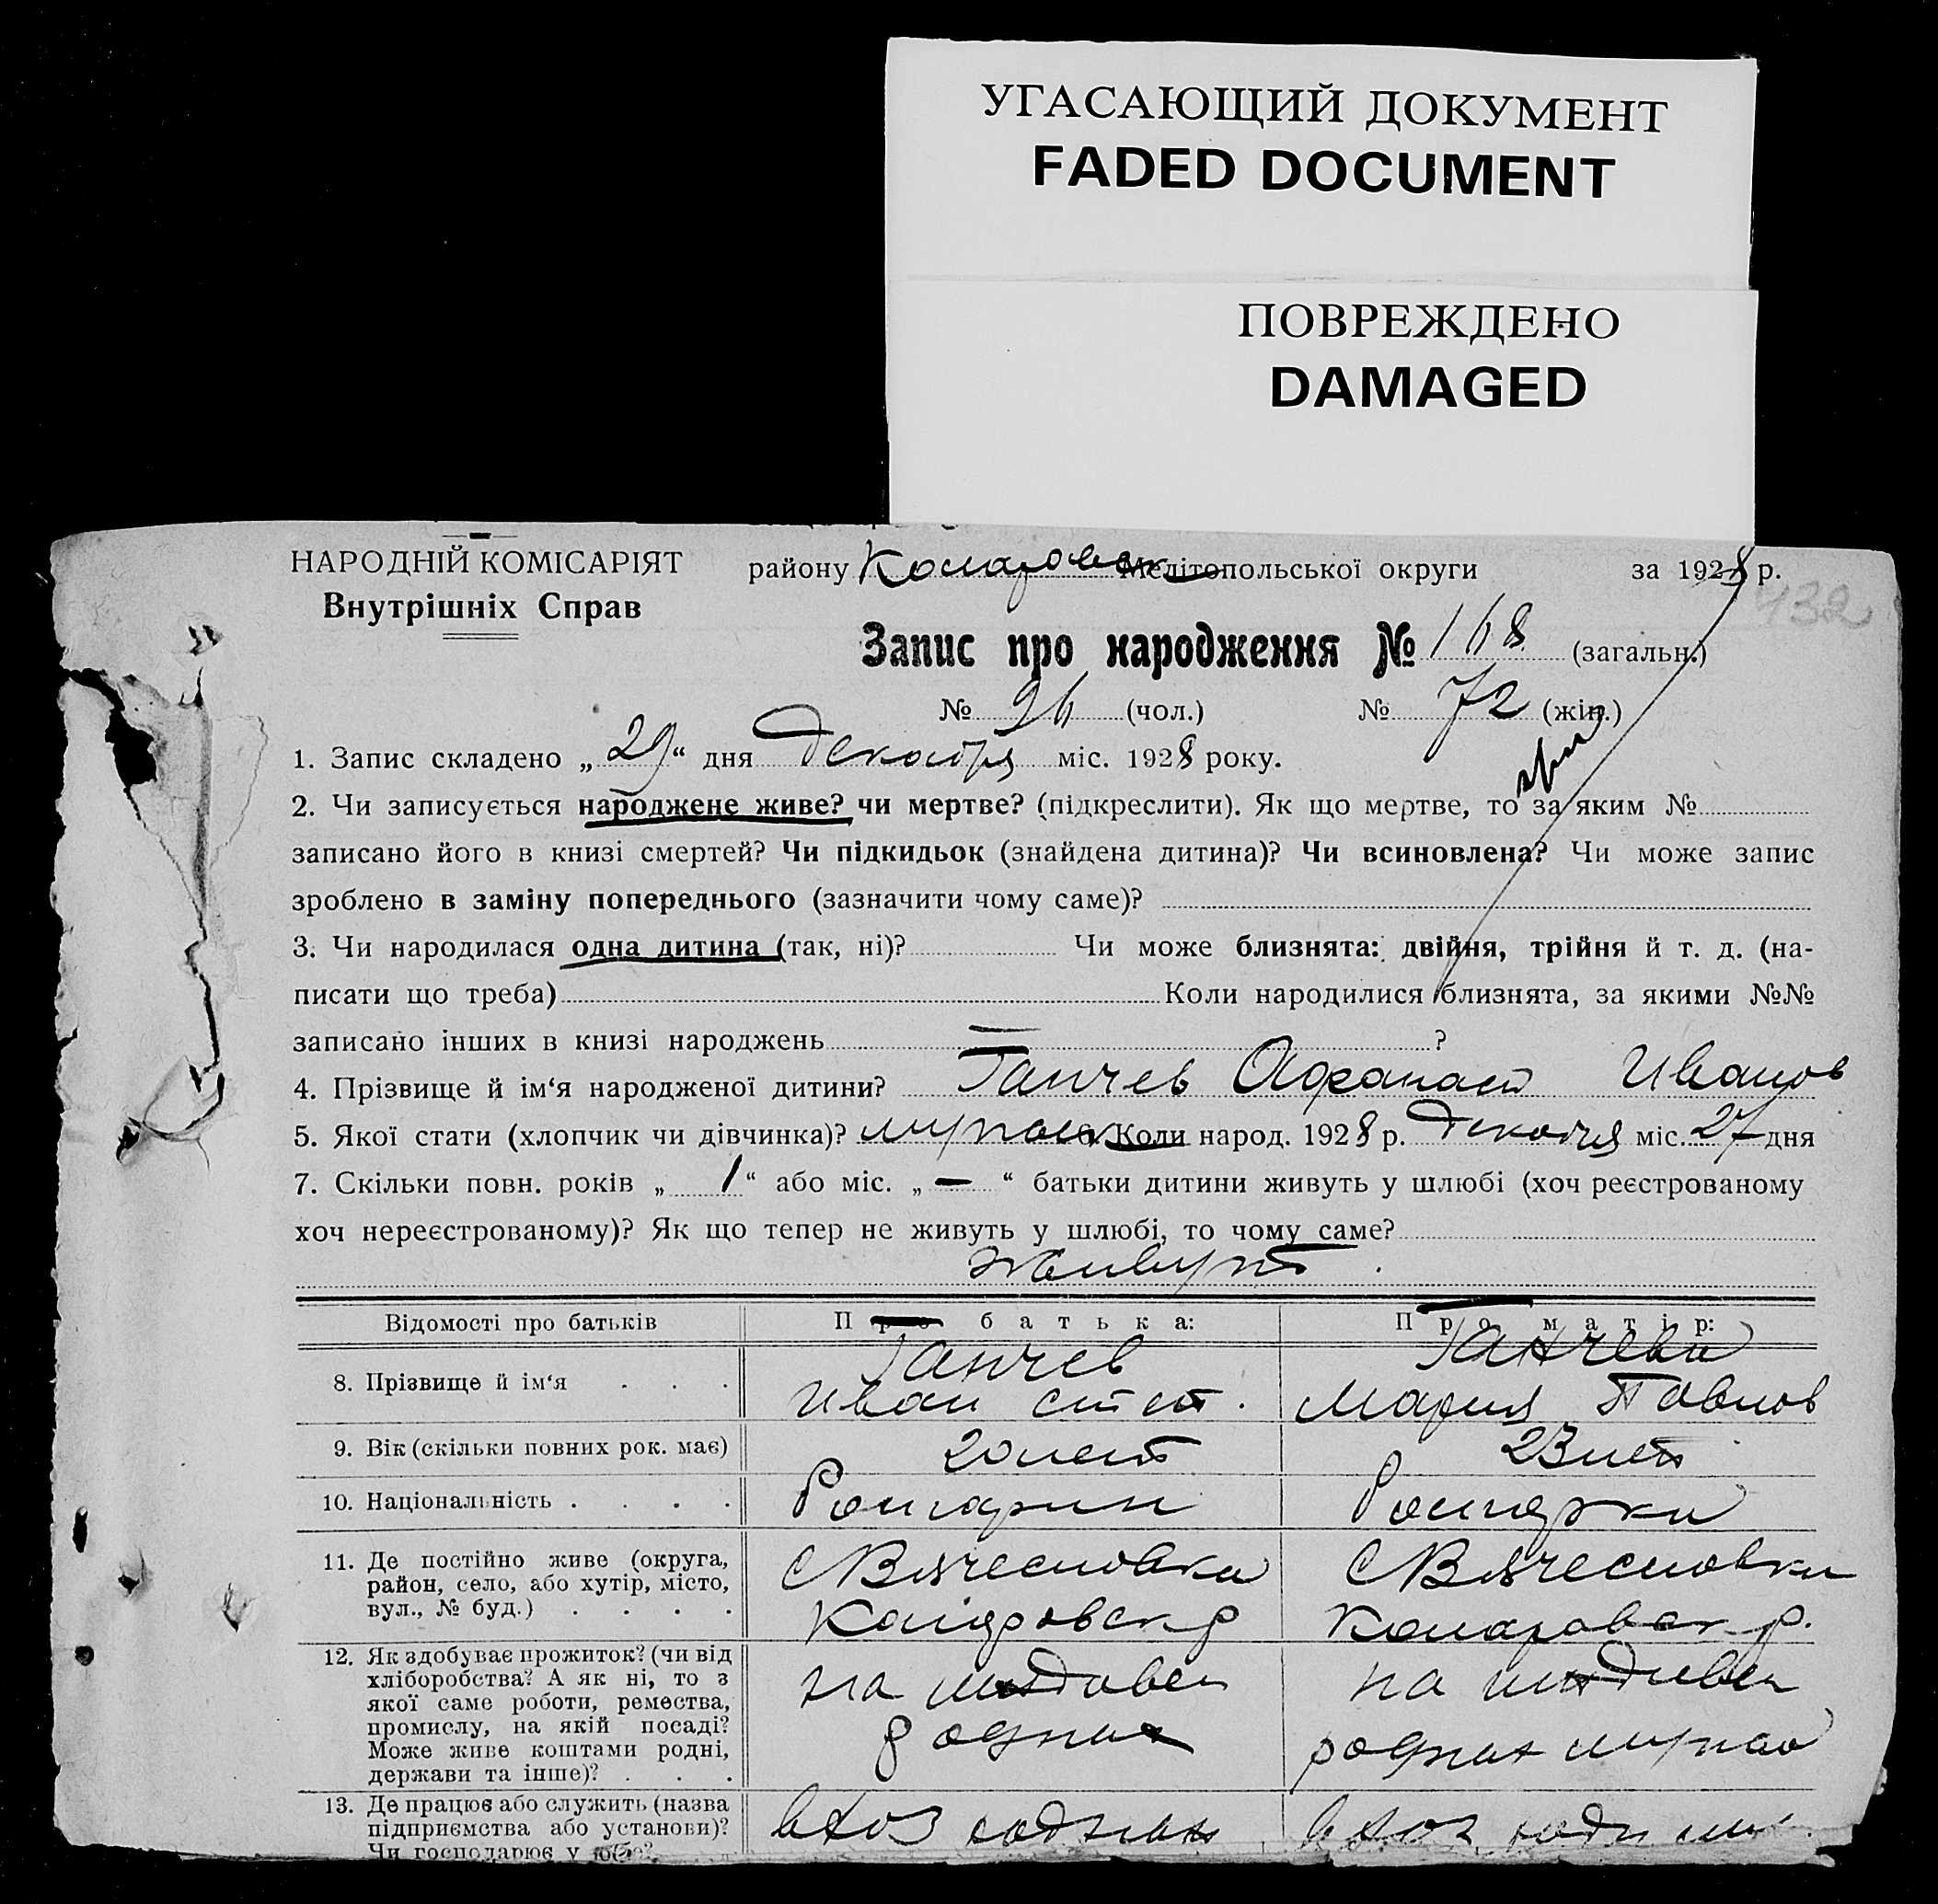 УГАСАЮЩИЙ ДОКУМЕНТ
FADED DOCUMENT
ПОВРЕЖДЕНО
DAMAGED
НАРОДНІЙ КОМІСАРІЯТ
Внутрішніх Справ
району Коларовск Мелітопольської округи за 1928 р.
432
Запис про народження № 168 (загальн.)
№ 96 (чол.) № 72 (жін.)
1. Запис складено „29“ дня Декабря міс. 1928 року.
2. Чи записується народжене живе? чи мертве? (підкреслити). Як що мертве, то за яким №
записано його в книзі смертей? Чи підкидьок (знайдена дитина)? Чи всиновлена? Чи може запис
зроблено в заміну попереднього (зазначити чому саме)?
3. Чи народилася одна дитина (так, ні)? Чи може близнята: двійня, трійня й т. д. (на-
писати що треба) Коли народилися близнята, за якими №№
записано інших в книзі народжень ?
4. Прізвище й ім‘я народженої дитини? Ганчев Афанасий Иванов
5. Якої стати (хлопчик чи дівчинка)? Коли народ. 1928 р. Декабря міс. 27 дня
7. Скільки повн. років „ 1 “ або міс. „ — “ батьки дитини живуть у шлюбі (хоч реєстрованому
хоч нереєстрованому)? Як що тепер не живуть у шлюбі, то чому саме?
живут
Відомості про батьків Про батька: Про матір:
8. Прізвище й ім‘я Ганчев Иван Степ. Ганчева Мария Павлов
9. Вік (скільки повних рок. має) 20 лет 23 лет
10. Національність Болгарин Болгарка
11. Де постійно живе (округа, район, село, або хутір, місто, вул., № буд.) С Вячесловка Коларовск р С Вячесловка Коларовск р.
12. Як здобуває прожиток? (чи від хліборобства? А як ні, то з якої саме роботи, ремества, промислу, на якій посаді? Може живе коштами родні, держави та інше)? на иждивен родных на иждивен родных мужа
13. Де працює або служить (назва підприємства або установи)? Чи господарює у себе? в хоз родных в хоз